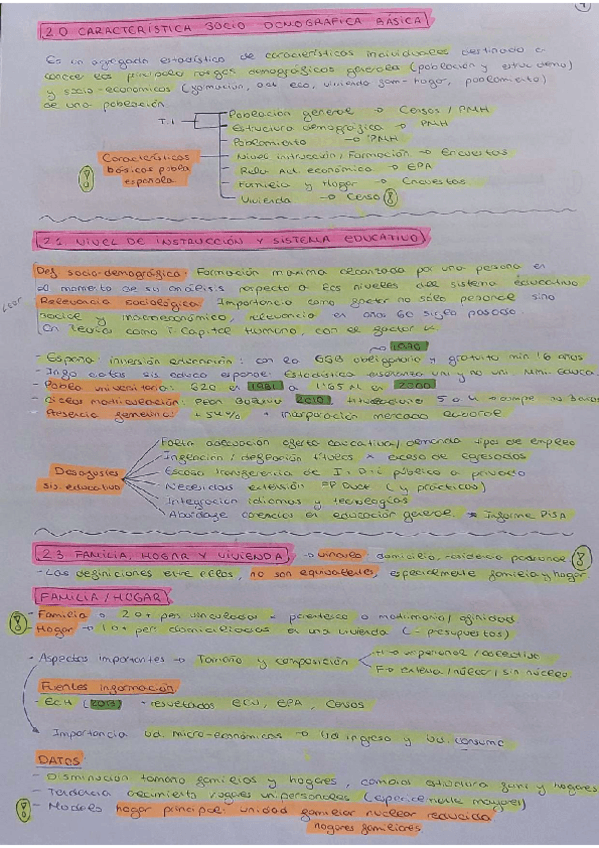 2.0 CARACTERÍSTICA SOCIO DEMOGRÁFICA BÁSICA
Es un agregado estadístico de características individuales destinado a
conocer los principales rasgos demográficos generales (población y estructura)
y socio-económicos (formación, act eco, vivienda fam-hogar, poblamiento)
de una población.
T.1
Población general → Censos / PMH
Estructura demográfica → PMH
Poblamiento → PMH
Características
básicas pobla
española
Nivel instrucción / Formación → Encuestas
Relac Act. económica → EPA
Familia y Hogar → Encuestas
Vivienda → Censo
2.1 NIVEL DE INSTRUCCIÓN Y SISTEMA EDUCATIVO
Def socio-demográfica: Formación máxima alcanzada por una persona en
el momento de su análisis respecto a los niveles del sistema educativo
Relevancia sociológica: Importancia como factor no sólo personal sino
social y macroeconómico, relevancia en años 60 siglo pasado
En teorías como T. Capital humano, con el factor K
→ 1970
- España: inversión educación: con la EGB obligatoria + gratuita min 16 años
- Pobla universitaria: 620 en 1981 a 1'65 M en 2000
Presencia femenina: +54% + incorporación mercado laboral
Desajustes
sis. educativo
Falta adecuación oferta educativa / demanda tipos de empleo
Inflación / degradación títulos x exceso de egresados
Escasa transferencia de I+D+i público a privado
Necesidad extensión FP Dual (y prácticas)
Integración idiomas y tecnologías
Abordaje carencias en educación general * Informe PISA
2.3 FAMILIA, HOGAR Y VIVIENDA → vínculo domicilio, residencia
- Las definiciones entre ellos, no son equivalentes, especialmente familia y hogar
FAMILIA / HOGAR
- Familia → 2 o + per vinculadas - parentesco o matrimonio / afinidad
- Hogar → 1 o + pers domiciliadas en una vivienda (- presupuestos)
- Aspectos importantes → Tamaño y composición
H → unipersonal / colectivo
F → extensa / núcleo / sin núcleo
Fuentes información
- ECH (2013) - resultados ECV, EPA, Censos
Importancia ud. micro-económicas → Ud ingreso y ud. consumo
DATOS
- Disminución tamaño familias y hogares, cambios estructura fam y hogares
- Tendencia crecimiento hogares unipersonales (especialmente mayores)
- Modelo hogar principal: unidad familiar nuclear reducida
hogares familiares